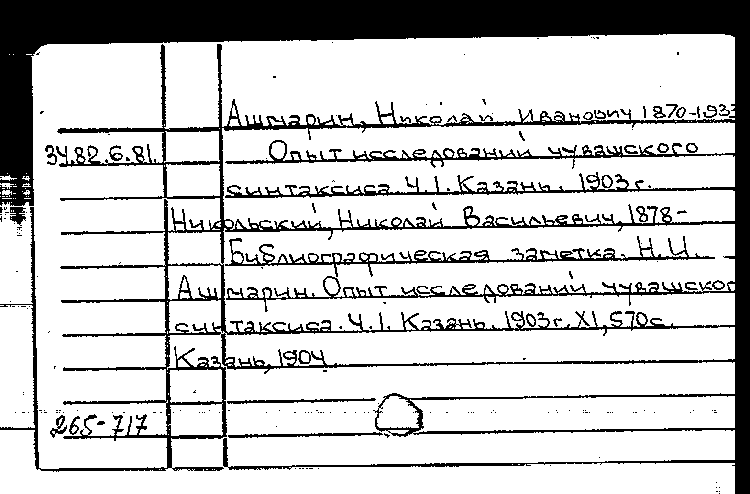 Ашмарин, Николай Иванович, 1870-1933
34.82.6.81. Опыт исследований чувашского
синтаксиса. Ч.I. Казань. 1903 г.
Никольский, Николай Васильевич, 1878-
Библиографическая заметка. Н.И.
Ашмарин. Опыт исследований чувашског
синтаксиса. Ч.I. Казань. 1903 г. XI, 570 с.
Казань, 1904.
265-717